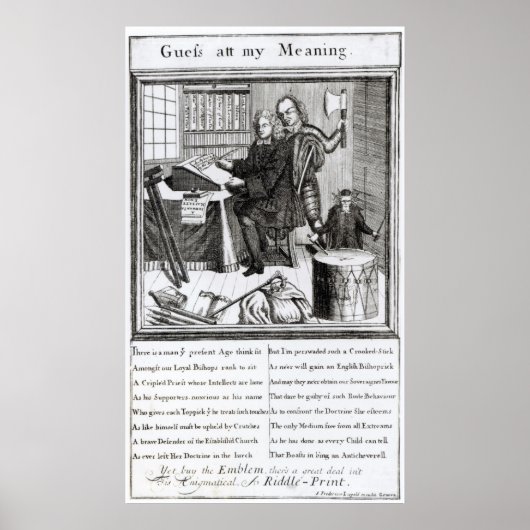 Guess att my Meaning.
There is a man yͤ present Age think fit
Amongst our Loyal Bishops rank to sit
A Cripled Priest whose Intellects are lame
As his Supporters notorious as his name
Who gives each Toppick yͭ he treats such touches
As like himself must be upheld by Crutches
A brave Defender of the Establish'd Church
As ever left Her Doctrine in the lurch
But I'm perswaded such a Crooked-Stick
As ne'er will gain an English Bishoprick
And may they ne'er obtain our Soveraignes
That dare be guilty of such Rude Behaviour
As to confront the Doctrine She esteems
The only Medium free from all Extreams
As he has done as every Child can tell
That Boasts in b'ing an Anticheverell.
Yet buy the Emblem, there's a great deal in't
'Tis Ænigmatical, A Riddle-Print.